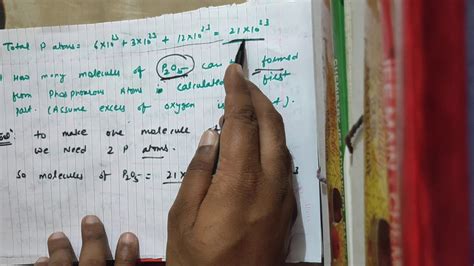 Total P atoms = 6x10²³ + 3x10²³ + 12x10²³ = 21x10²³
How many molecules of P₂O₅ can formed
from Phosphorous Atoms calculated first
part. (Assume excess of oxygen).
to make one molecule
we need 2 P atoms.
So molecules of P₂O₅ = 21
CHEMISTRY